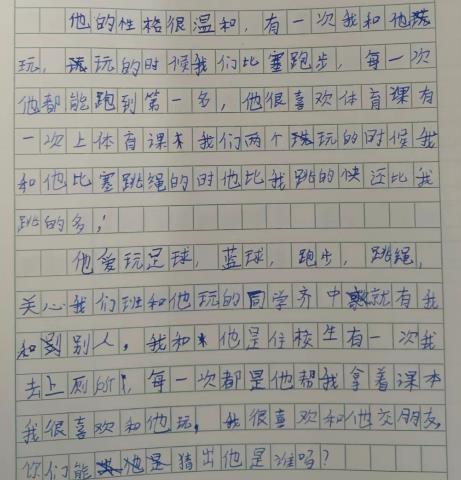 他的性格很温和，有一次我和他
玩，玩的时候我们比塞跑步，每一次
他都能跑到第一多，他很喜欢体育课有
一次上体育课 我们两个玩的时候我
和他比塞跳绳的时他比我跳的快还比我
跳的多！
他爱玩足球，蓝球，跑步，跳绳，
关心我们班和他玩的同学齐中就有我
和别人，我和他是住校生有一次我
去上厕所，每一次都是他帮我拿着课本
我很喜欢和他玩，我很喜欢和他交朋友，
你们能猜出他是谁吗？